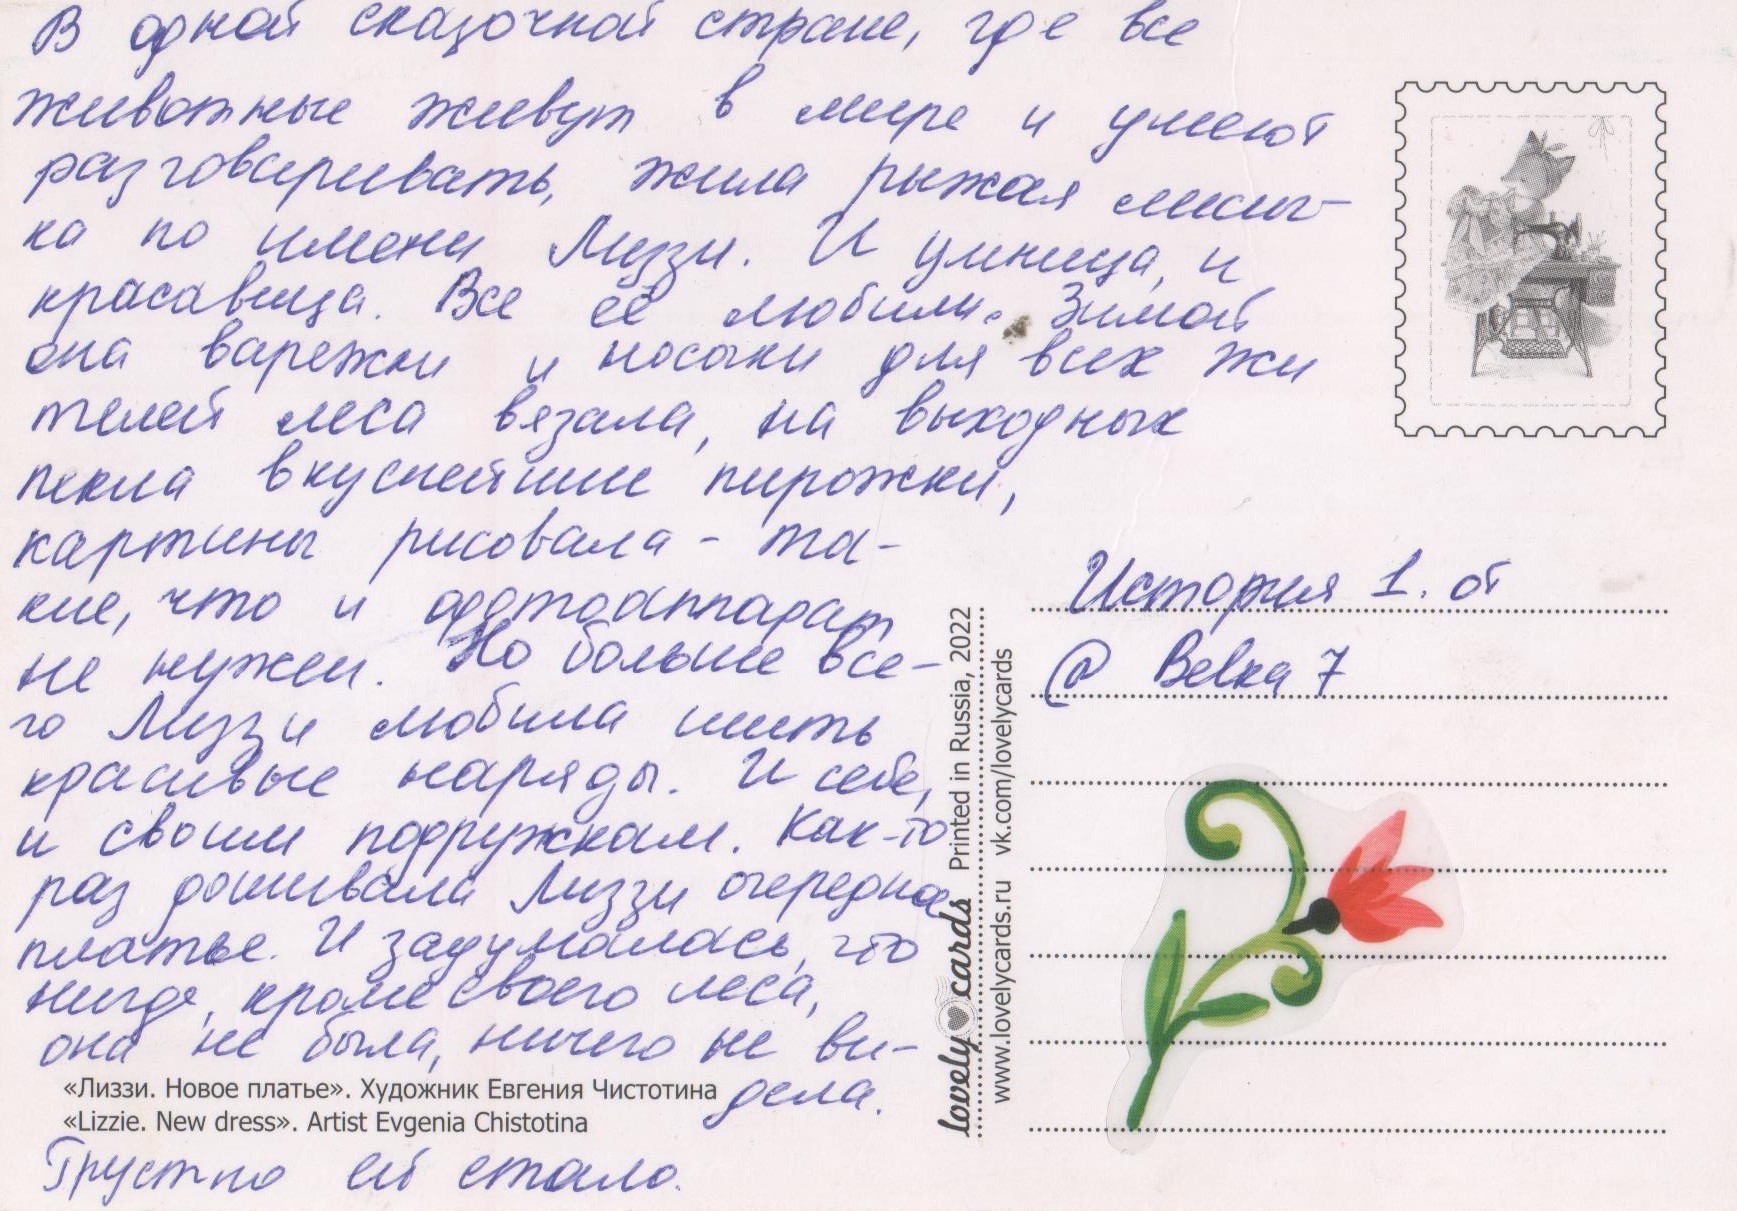 В одной сказочной стране, где все
животные живут в мире и умеют
разговаривать, жила рыжая лисич-
ка по имени Лиззи. И умница, и
красавица. Все её любили. Зимой
она варежки и носочки для всех жи
телей леса вязала, на выходных
пекла вкуснейшие пирожки,
картины рисовала - та-
кие, что и фотоаппарат
не нужен. Но больше все-
го Лиззи любила шить
красивые наряды. И себе,
и своим подружкам. Как-то
раз дошивала Лиззи очередное
платье. И задумалась, что
нигде, кроме своего леса,
она не была, ничего не ви-
дела.
«Лиззи. Новое платье». Художник Евгения Чистотина
«Lizzie. New dress». Artist Evgenia Chistotina
Грустно ей стало.
lovely cards Printed in Russia, 2022
www.lovelycards.ru vk.com/lovelycards
История 1. от
@ Belka 7